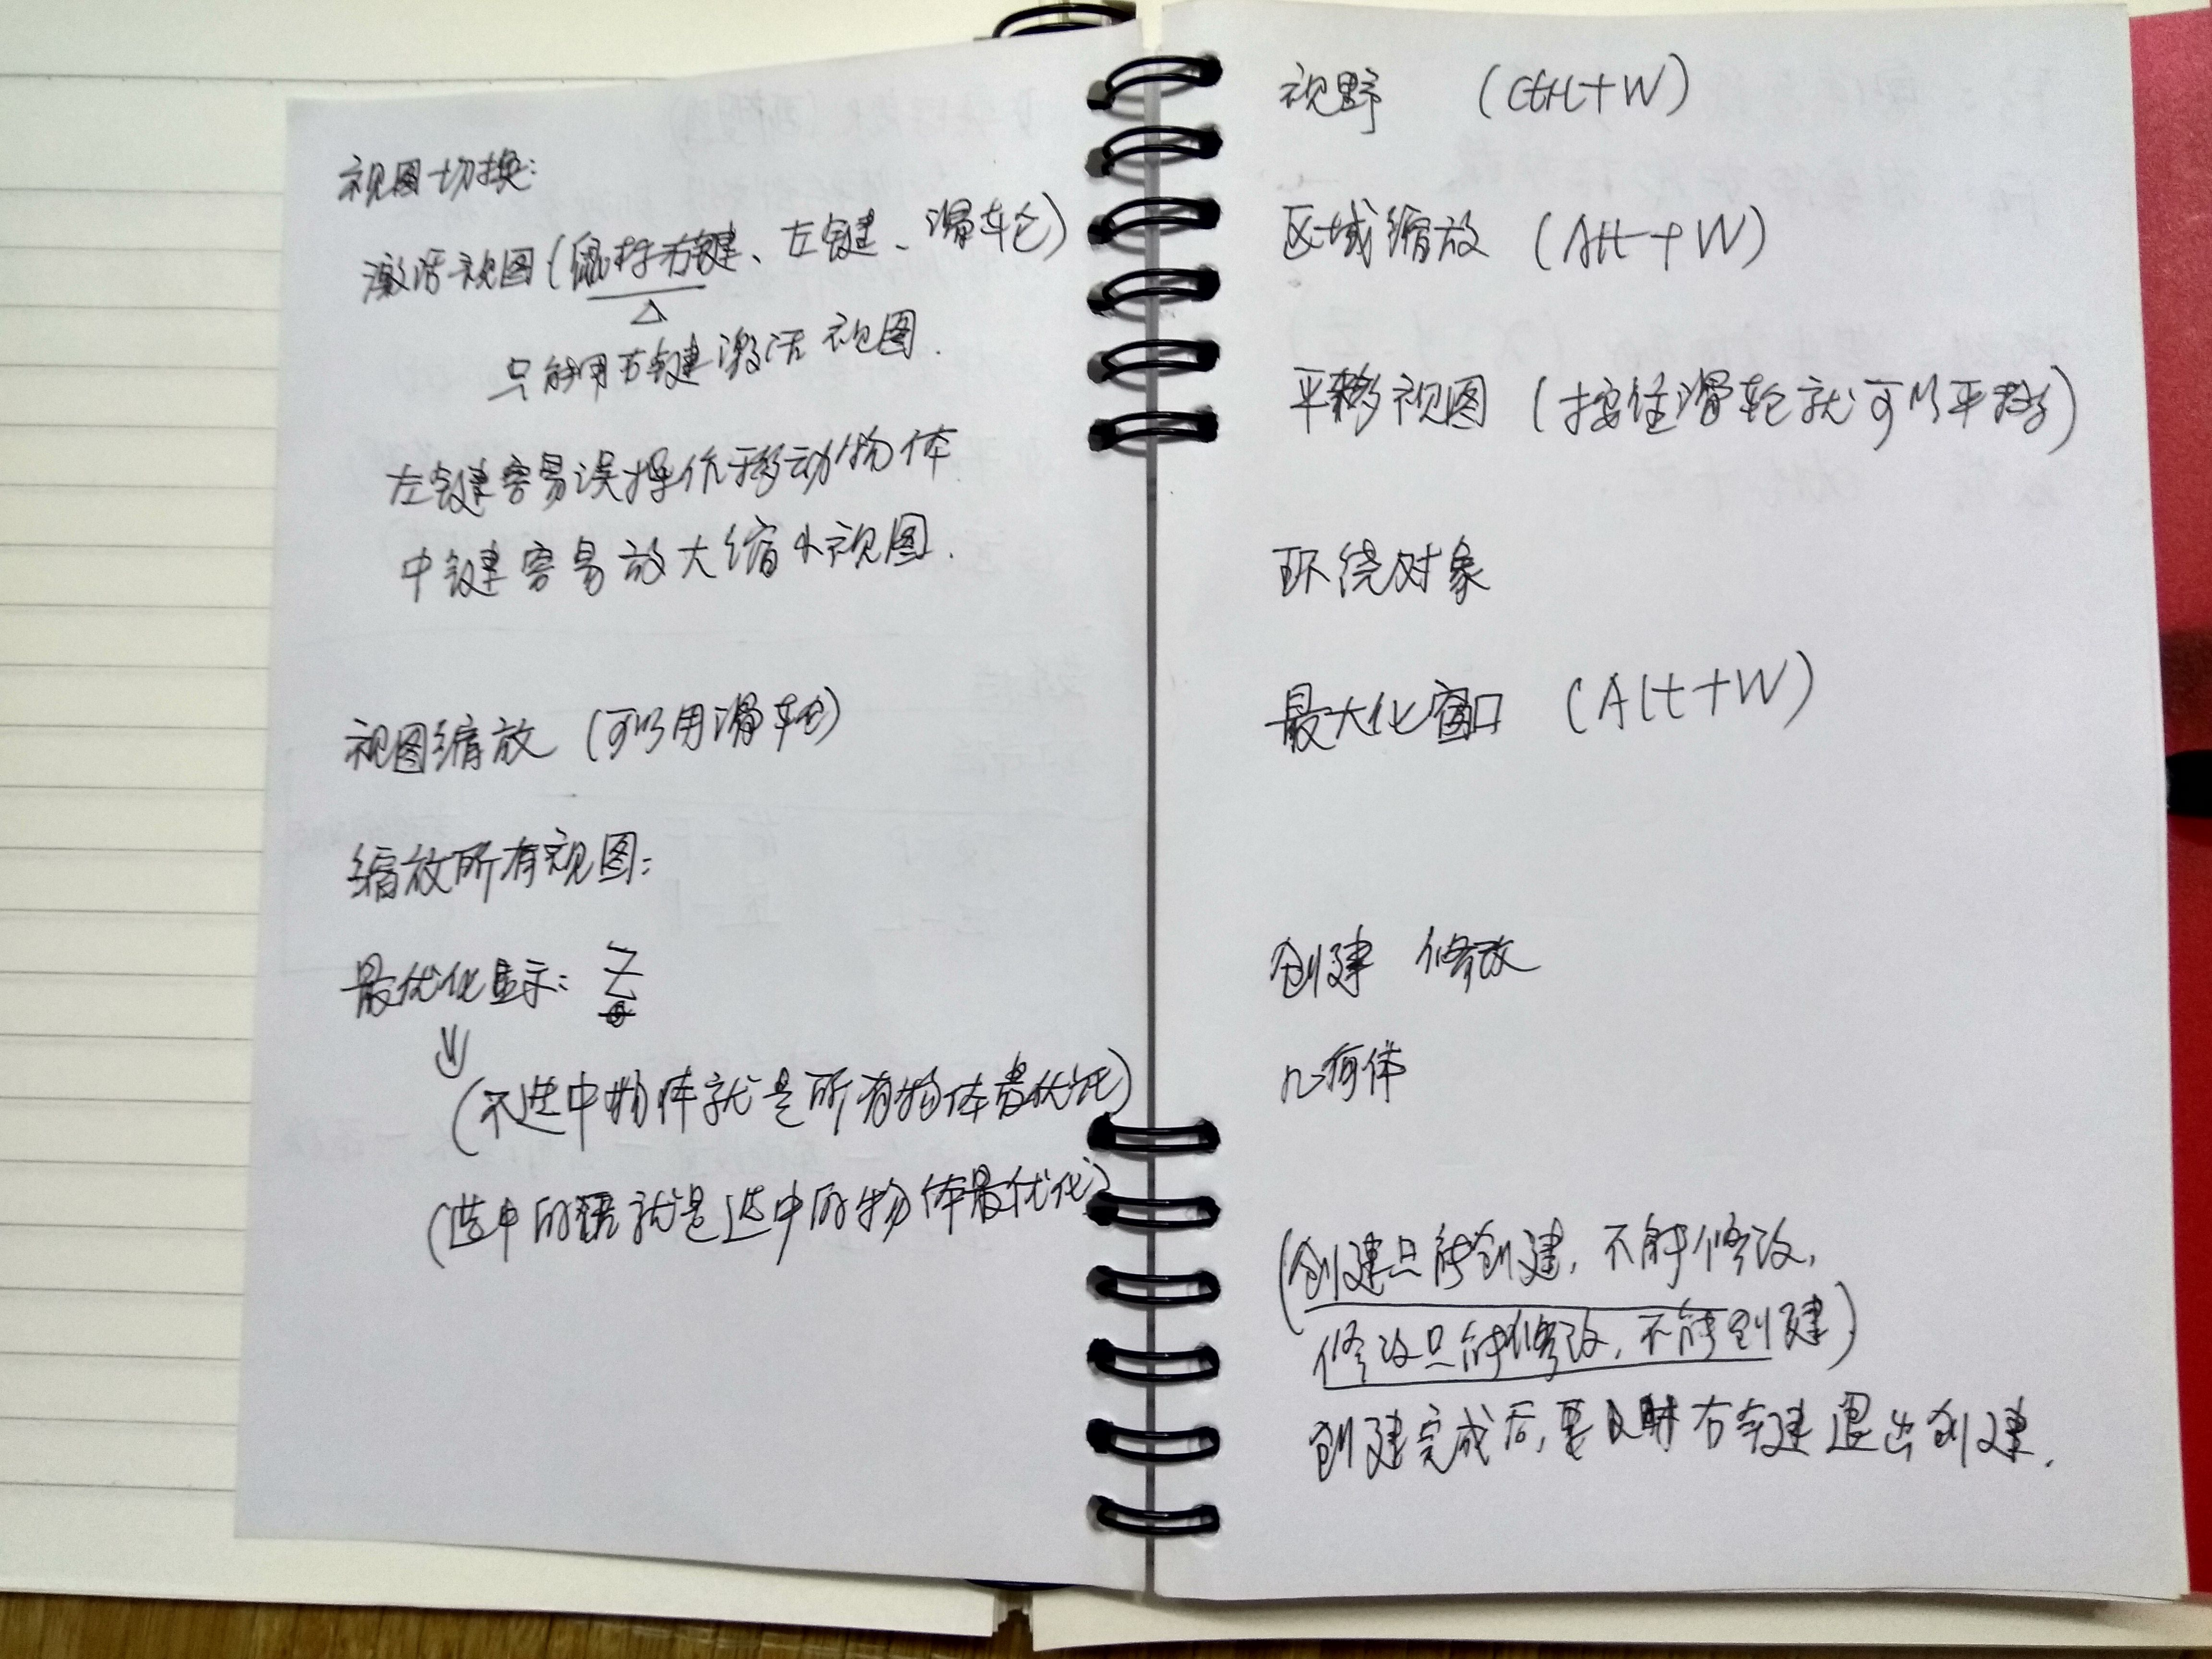 视图切换:
激活视图(鼠标右键、左键、滑轮)
△
只能用右键激活视图.
左键容易误操作移动物体
中键容易放大缩小视图.
视图缩放 (可以用滑轮)
缩放所有视图:
最优化显示: Z
(不选中物体就是所有物体最优化)
(选中的话就是选中的物体最优化)
视野 (Ctrl+W)
区域缩放 (Alt+W)
平移视图 (按住滑轮就可以平移)
环绕对象
最大化窗口 (Alt+W)
创建 修改
几何体
(创建只能创建, 不能修改,
修改只能修改, 不能创建)
创建完成后, 要及时右键退出创建.